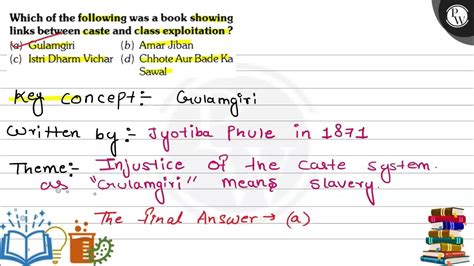 Which of the following was a book showing
links between caste and class exploitation ?
(a) Gulamgiri (b) Amar Jiban
(c) Istri Dharm Vichar (d) Chhote Aur Bade Ka
Sawal
Key concept:- Gulamgiri
Written by:- Jyotiba Phule in 1871
Theme:- Injustice of the caste system.
as "Gulamgiri" means slavery.
The final Answer → (a)